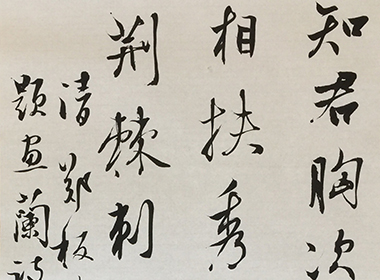 知君胸次
相扶秀
荆棘刺
清郑板
题画兰诗